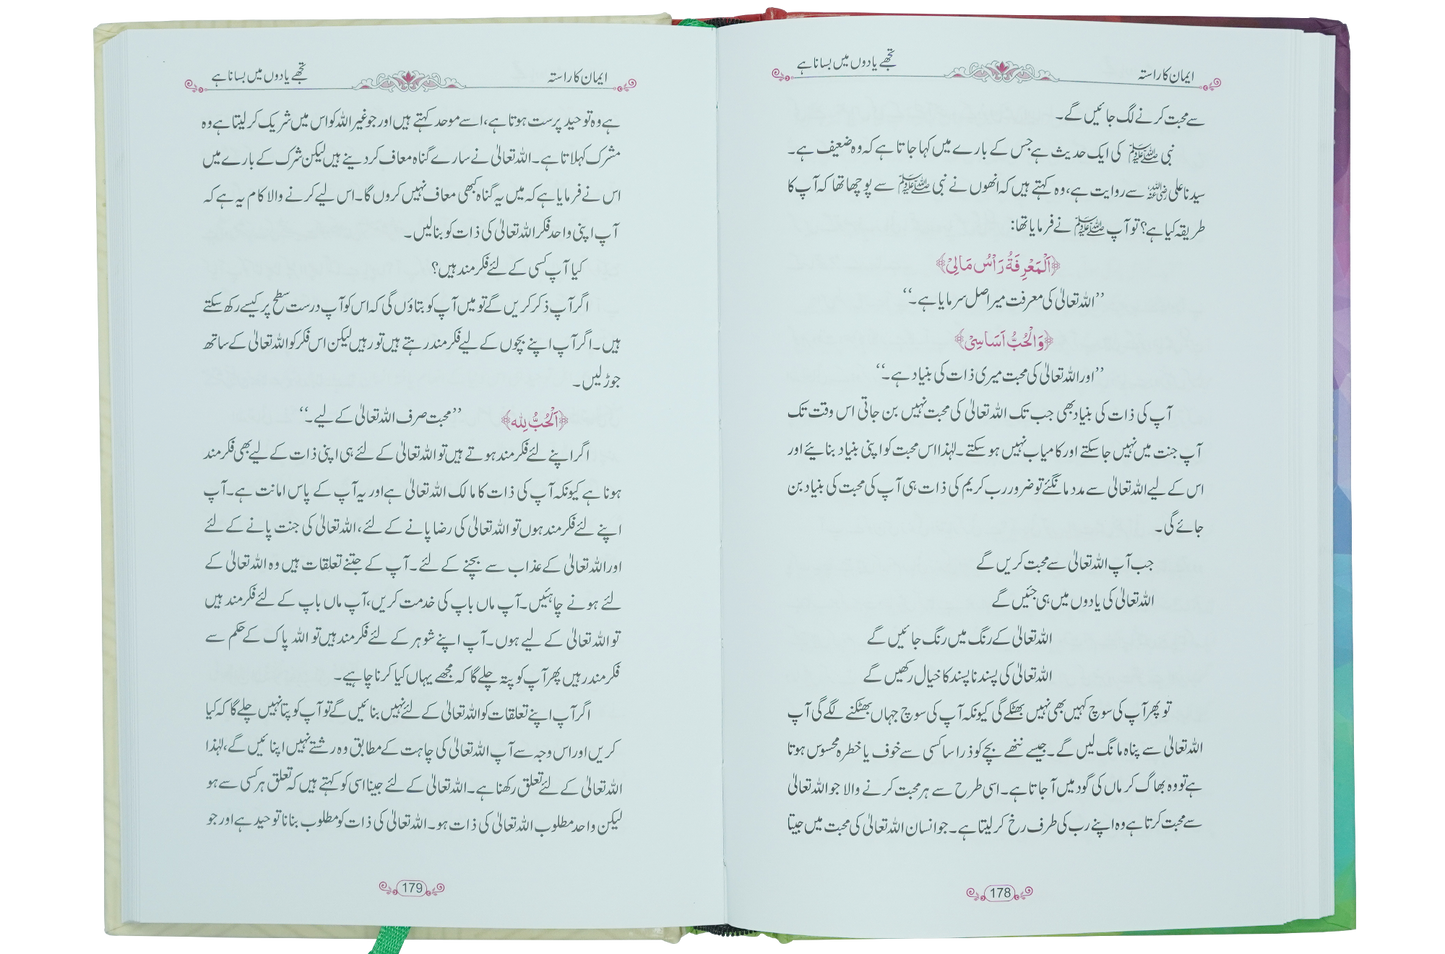 ایمان کا راستہ
تجھے یادوں میں بسانا ہے
سے محبت کرنے لگ جائیں گے۔
نبی ﷺ کی ایک حدیث ہے جس کے بارے میں کہا جاتا ہے کہ وہ ضعیف ہے۔
سیدنا علی رضی اللہ عنہ سے روایت ہے، وہ کہتے ہیں کہ انھوں نے نبی ﷺ سے پوچھا تھا کہ آپ کا
طریقہ کیا ہے؟ تو آپ ﷺ نے فرمایا تھا:
﴿اَلْمَعْرِفَةُ رَاْسُ مَالِيْ﴾
’’اللہ تعالیٰ کی معرفت میرا اصل سرمایا ہے۔‘‘
﴿وَالْحُبُّ اَسَاسِيْ﴾
’’اور اللہ تعالیٰ کی محبت میری ذات کی بنیاد ہے۔‘‘
آپ کی ذات کی بنیاد بھی جب تک اللہ تعالیٰ کی محبت نہیں بن جاتی اس وقت تک
آپ جنت میں نہیں جا سکتے اور کامیاب نہیں ہو سکتے۔ لہٰذا اس محبت کو اپنی بنیاد بنایئے اور
اس کے لیے اللہ تعالیٰ سے مدد مانگئے تو ضرور رب کریم کی ذات ہی آپ کی محبت کی بنیاد بن
جائے گی۔
جب آپ اللہ تعالیٰ سے محبت کریں گے
اللہ تعالیٰ کی یادوں میں ہی جئیں گے
اللہ تعالیٰ کے رنگ میں رنگ جائیں گے
اللہ تعالیٰ کی پسند نا پسند کا خیال رکھیں گے
تو پھر آپ کی سوچ کہیں بھی نہیں بھٹکے گی کیونکہ آپ کی سوچ جہاں بھٹکنے لگے گی آپ
اللہ تعالیٰ سے پناہ مانگ لیں گے۔ جیسے ننھے بچے کو ذرا سا کسی سے خوف یا خطرہ محسوس ہوتا
ہے تو وہ بھاگ کر ماں کی گود میں آ جاتا ہے۔ اسی طرح سے ہر محبت کرنے والا جو اللہ تعالیٰ
سے محبت کرتا ہے وہ اپنے رب کی طرف رخ کر لیتا ہے۔ جو انسان اللہ تعالیٰ کی محبت میں جیتا
178
ایمان کا راستہ
تجھے یادوں میں بسانا ہے
ہے وہ توحید پرست ہوتا ہے، اسے موحد کہتے ہیں اور جو غیر اللہ کو اس میں شریک کر لیتا ہے وہ
مشرک کہلاتا ہے۔ اللہ تعالیٰ نے سارے گناہ معاف کر دینے ہیں لیکن شرک کے بارے میں
اس نے فرمایا ہے کہ میں یہ گناہ کبھی معاف نہیں کروں گا۔ اس لیے کرنے والا کام یہ ہے کہ
آپ اپنی واحد فکر اللہ تعالیٰ کی ذات کو بنا لیں۔
کیا آپ کسی کے لئے فکر مند ہیں؟
اگر آپ ذکر کریں گے تو میں آپ کو بتاؤں گی کہ اس کو آپ درست سطح پر کیسے رکھ سکتے
ہیں۔ اگر آپ اپنے بچوں کے لیے فکر مند رہتے ہیں تو رہیں لیکن اس فکر کو اللہ تعالیٰ کے ساتھ
جوڑ لیں۔
﴿اَلْحُبُّ لِلّٰه﴾ ’’محبت صرف اللہ تعالیٰ کے لیے۔‘‘
اگر اپنے لئے فکر مند ہوتے ہیں تو اللہ تعالیٰ کے لئے ہی اپنی ذات کے لیے بھی فکر مند
ہونا ہے کیونکہ آپ کی ذات کا مالک اللہ تعالیٰ ہے اور یہ آپ کے پاس امانت ہے۔ آپ
اپنے لئے فکر مند ہوں تو اللہ تعالیٰ کی رضا پانے کے لئے، اللہ تعالیٰ کی جنت پانے کے لئے
اور اللہ تعالیٰ کے عذاب سے بچنے کے لئے۔ آپ کے جتنے تعلقات ہیں وہ اللہ تعالیٰ کے
لئے ہونے چاہئیں۔ آپ ماں باپ کی خدمت کریں، آپ ماں باپ کے لئے فکر مند ہیں
تو اللہ تعالیٰ کے لیے ہوں۔ آپ اپنے شوہر کے لئے فکر مند ہیں تو اللہ پاک کے حکم سے
فکر مند رہیں پھر آپ کو پتہ چلے گا کہ مجھے یہاں کیا کرنا چاہیے۔
اگر آپ اپنے تعلقات کو اللہ تعالیٰ کے لئے نہیں بنائیں گے تو آپ کو پتا نہیں چلے گا کہ کیا
کریں اور اس وجہ سے آپ اللہ تعالیٰ کی چاہت کے مطابق وہ رشتے نہیں اپنائیں گے، لہٰذا
اللہ تعالیٰ کے لئے تعلق رکھنا ہے۔ اللہ تعالیٰ کے لئے جینا اسی کو کہتے ہیں کہ تعلق ہر کسی سے ہو
لیکن واحد مطلوب اللہ تعالیٰ کی ذات ہو۔ اللہ تعالیٰ کی ذات کو مطلوب بنانا توحید ہے اور جو
179